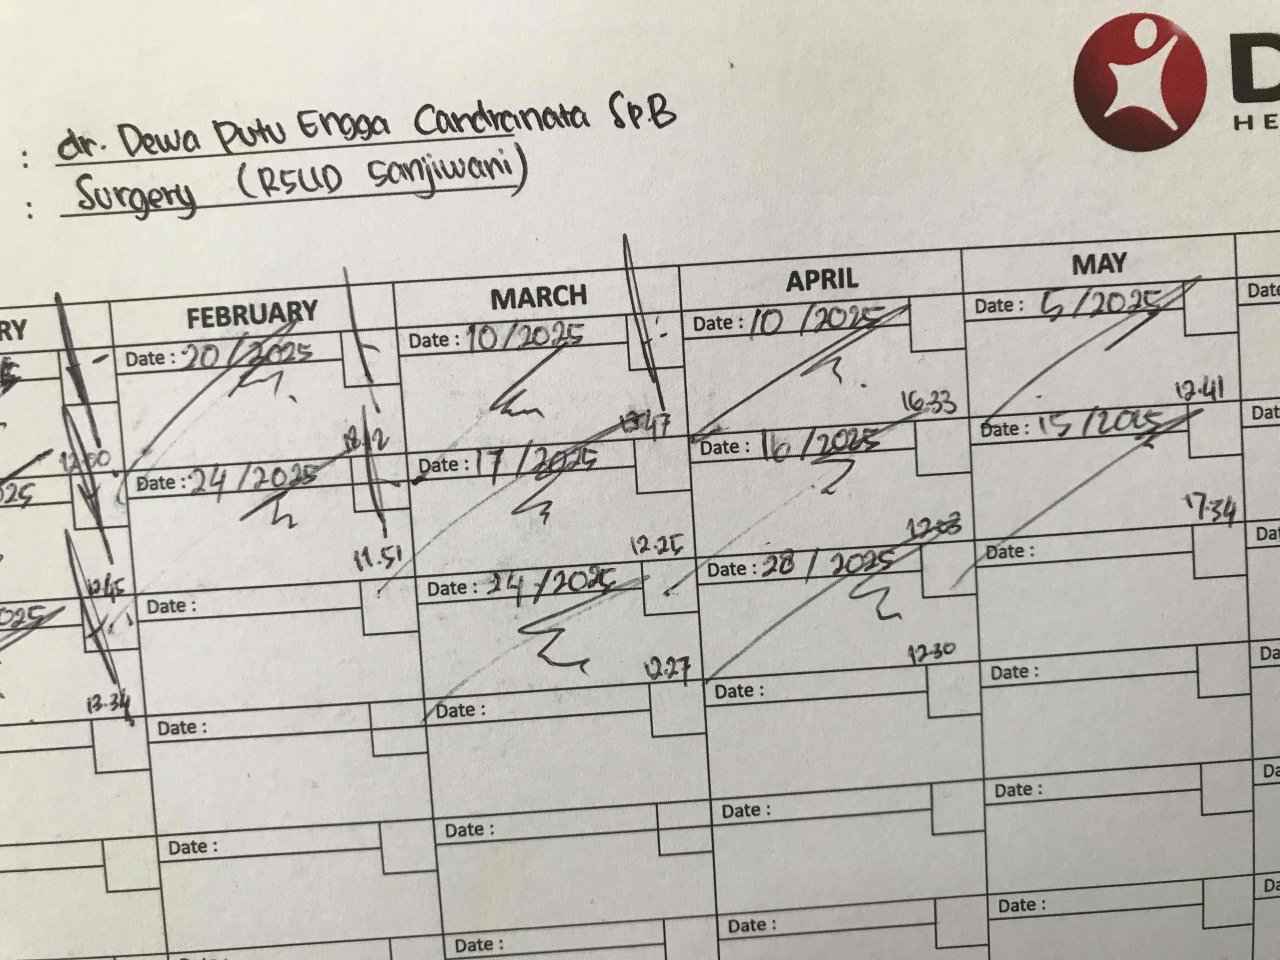 : dr. Dewa Putu Engga Candranata SpB
: Surgery (RSUD Sanjiwani)
D
HE
RY FEBRUARY MARCH APRIL MAY
Date : 20/2025 Date : 10/2025 Date : 10/2025 Date : 5/2025 Date
12.00 18.12 13.47 16.33 12.41
25 Date : 24/2025 Date : 17/2025 Date : 16/2025 Date : 15/2025 Dat
1245 11.51 12.25 12.03 17.34
025 Date : Date : 24/2025 Date : 28/2025 Date : Da
13.34 12.27 12.30
Date : Date : Date : Date : Da
Date : Date : Date : Date : Da
Date : Date : Date : Da